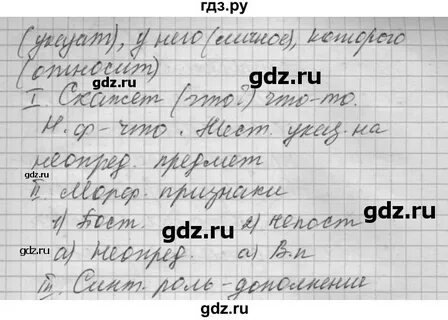 гдз.ру
(указат), у него (личное), которого
(относит)
I. Скажет (что?) что-то.
Н.ф - что. Мест. указ. на
неопред. предмет
II. Морф. признаки
1) Пост. 2) Непост
а) Неопред. а) В.п
III. Синт. роль - дополнение
gdz.ru
gdz.ru
gdz.ru
gdz.ru
gdz.ru
gdz.ru
gdz.ru
gdz.ru
gdz.ru
гдз.ру